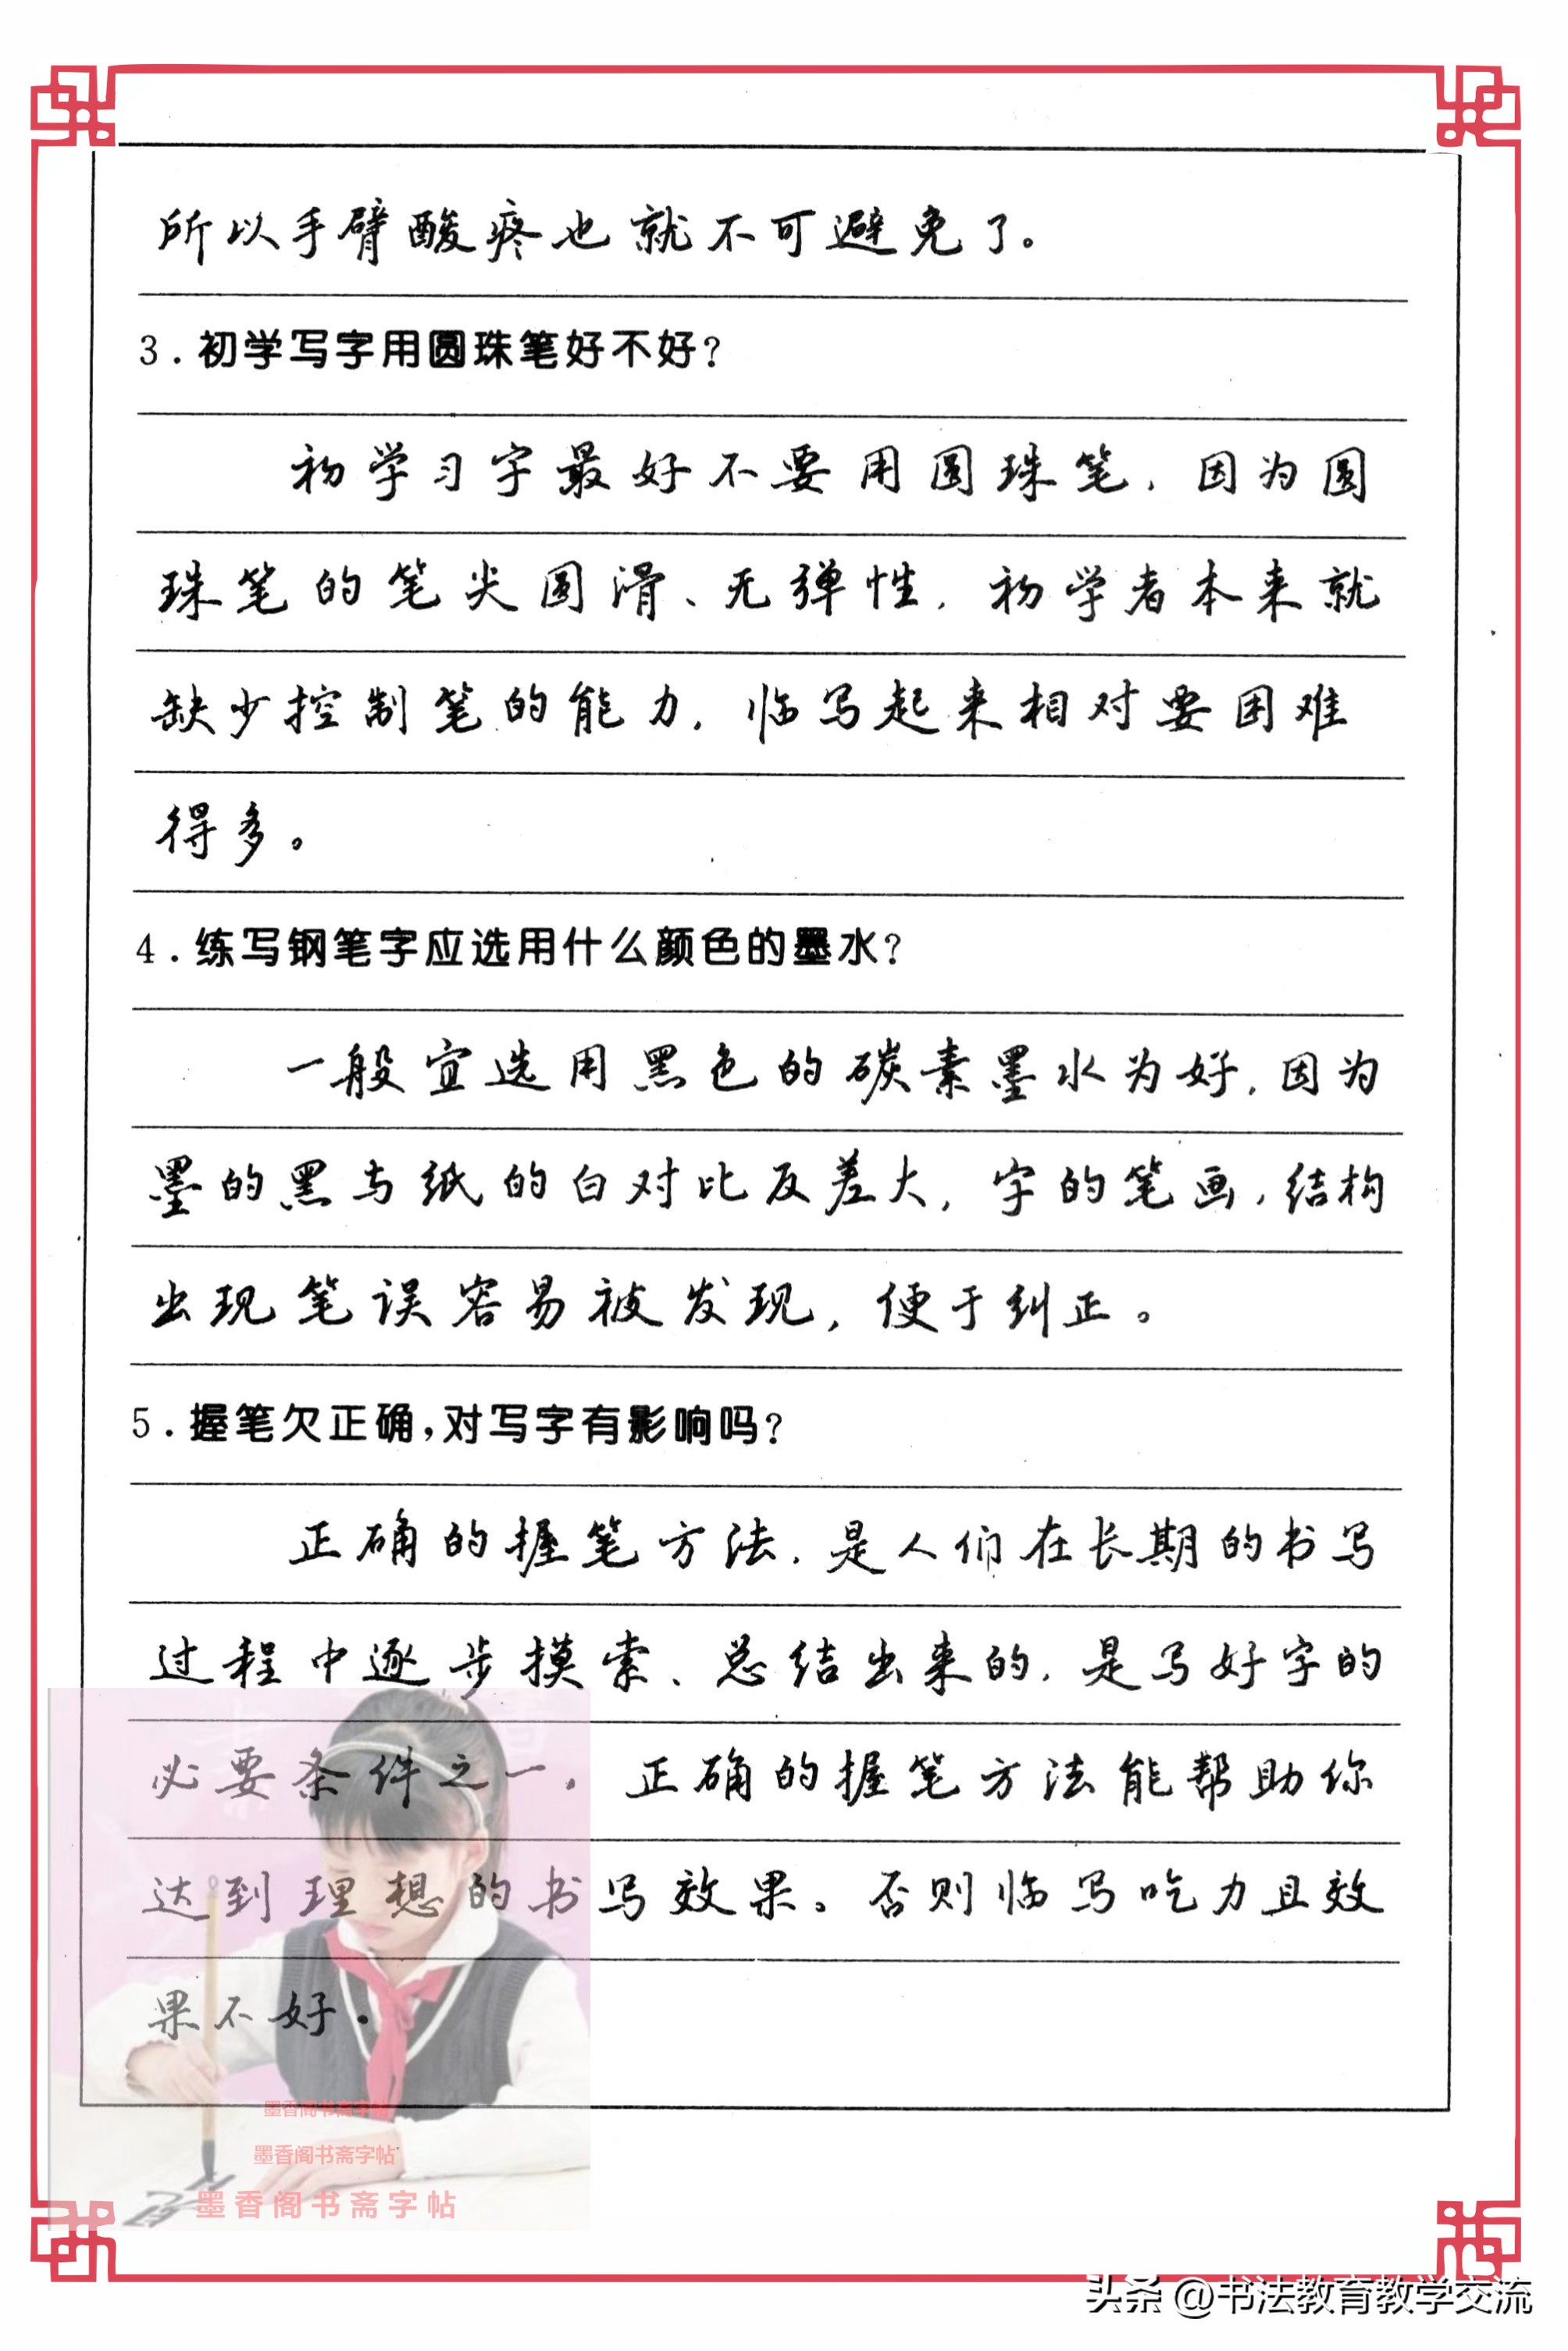 所以手臂酸疼也就不可避免了。
3.初学写字用圆珠笔好不好?
初学习字最好不要用圆珠笔,因为圆
珠笔的笔尖圆滑、无弹性,初学者本来就
缺少控制笔的能力,临写起来相对要困难
得多。
4.练写钢笔字应选用什么颜色的墨水?
一般宜选用黑色的碳素墨水为好,因为
墨的黑与纸的白对比反差大,字的笔画,结构
出现笔误容易被发现,便于纠正。
5.握笔欠正确,对写字有影响吗?
正确的握笔方法,是人们在长期的书写
过程中逐步摸索、总结出来的,是写好字的
必要条件之一,正确的握笔方法能帮助你
达到理想的书写效果。否则临写吃力且效
果不好.
墨香阁书斋字帖
墨香阁书斋字帖
墨香阁书斋字帖
头条 @书法教育教学交流